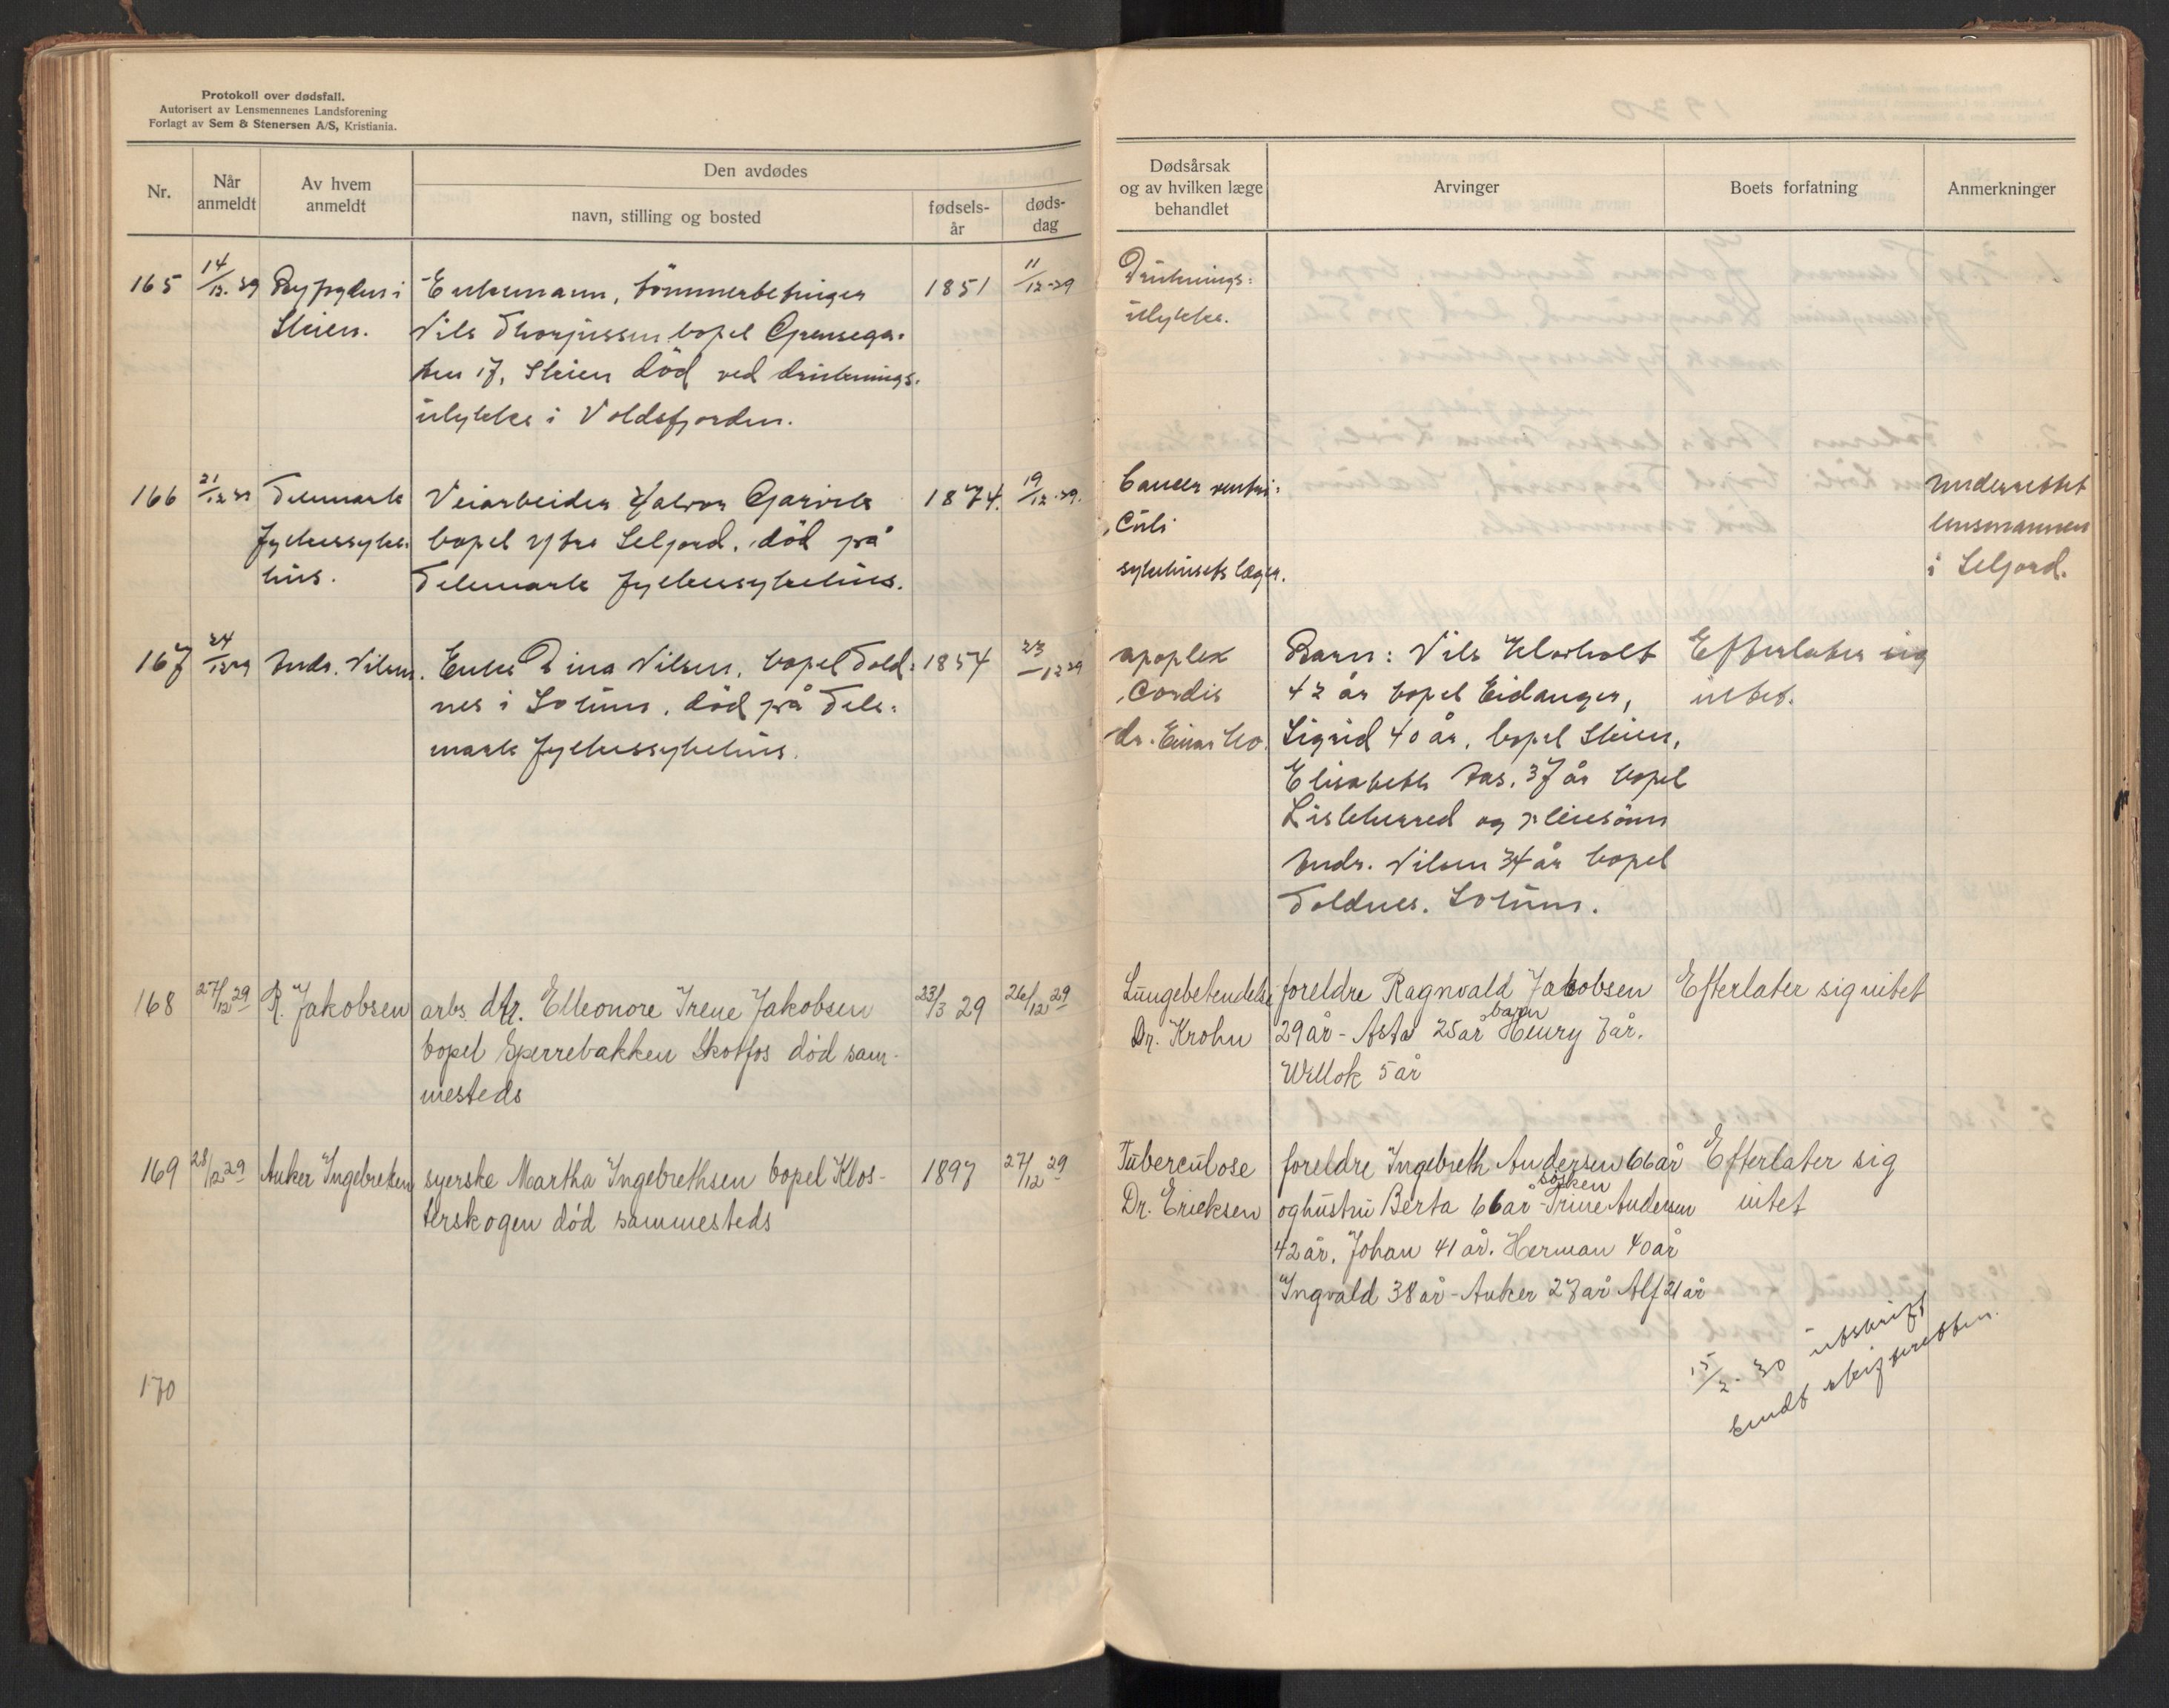 Protokoll over dødsfall.
Autorisert av Lensmennenes Landsforening
Forlagt av Sem & Stenersen A/S, Kristiania.
Nr.
Når anmeldt
Av hvem anmeldt
Den avdødes
navn, stilling og bosted
fødsels-år
døds-dag
165 14/12. 29 Byfogden i Enkemann, tømmerbetinger 1851 11/12-29
Skien. Nils Thorjussen bopel Grensega-
ten 17, Skien død ved druknings-
ulykke i Voldsfjorden.
166 21/12 29 Telemark Veiarbeider Halvor Garvik 1874. 19/12-29.
fylkessyke- bopel ytre Seljord, død på
hus. Telemark fylkessykehus.
167 24/12 29 Andr. Nilsen. Enke Dina Nilsen, bopel Told- 1854 23/12 29
nes i Solum, død på Tele-
mark fylkessykehus.
168 27/12 29 R. Jakobsen arbs. dtr. Elleonore Irene Jakobsen 23/3 29 26/12 29
bopel Sperrebakken Skotfos død sam-
mesteds
169 28/12 29 Anker Ingebretsen syerske Martha Ingebrethsen bopel Klos- 1897 27/12 29
terskogen død sammesteds
170
Dødsårsak
og av hvilken læge
behandlet
Arvinger
Boets forfatning
Anmerkninger
Druknings-
ulykke.
Cancer ventri- Underrettet
Culi lensmannen
sykehusets læger. i Seljord.
apoplex Barn: Nils Klovholt Efterlater sig
Cordis 42 år bopel Eidanger, intet.
dr. Einar Mo. Sigrid 40 år, bopel Skien,
Elisabeth Aas, 37 år bopel
Lisleherred og pleiesønn
Andr. Nilsen 34 år bopel
Toldnes. Solum.
Lungebetendelse foreldre Ragnvald Jakobsen Efterlater sig intet
barn
Dr. Krohn 29 år - Asta 25 år Henry 7 år.
Willok 5 år
Tuberculose foreldre Ingebreth Andersen 66 år Efterlater sig
søsken
Dr. Ericksen og hustru Berta 66 år - Trine Andersen intet
42 år. Johan 41 år. Herman 40 år
Ingvald 38 år - Anker 27 år Alf 21 år
15/2. 30 utskrift
sendt skifteretten.